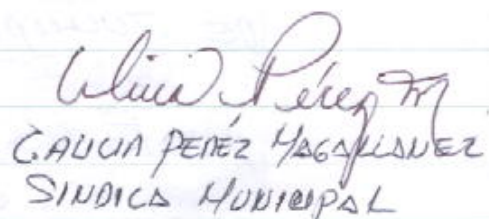 Alicia Pérez M
C. ALICIA PEREZ MAGALLANEZ
SINDICA MUNICIPAL